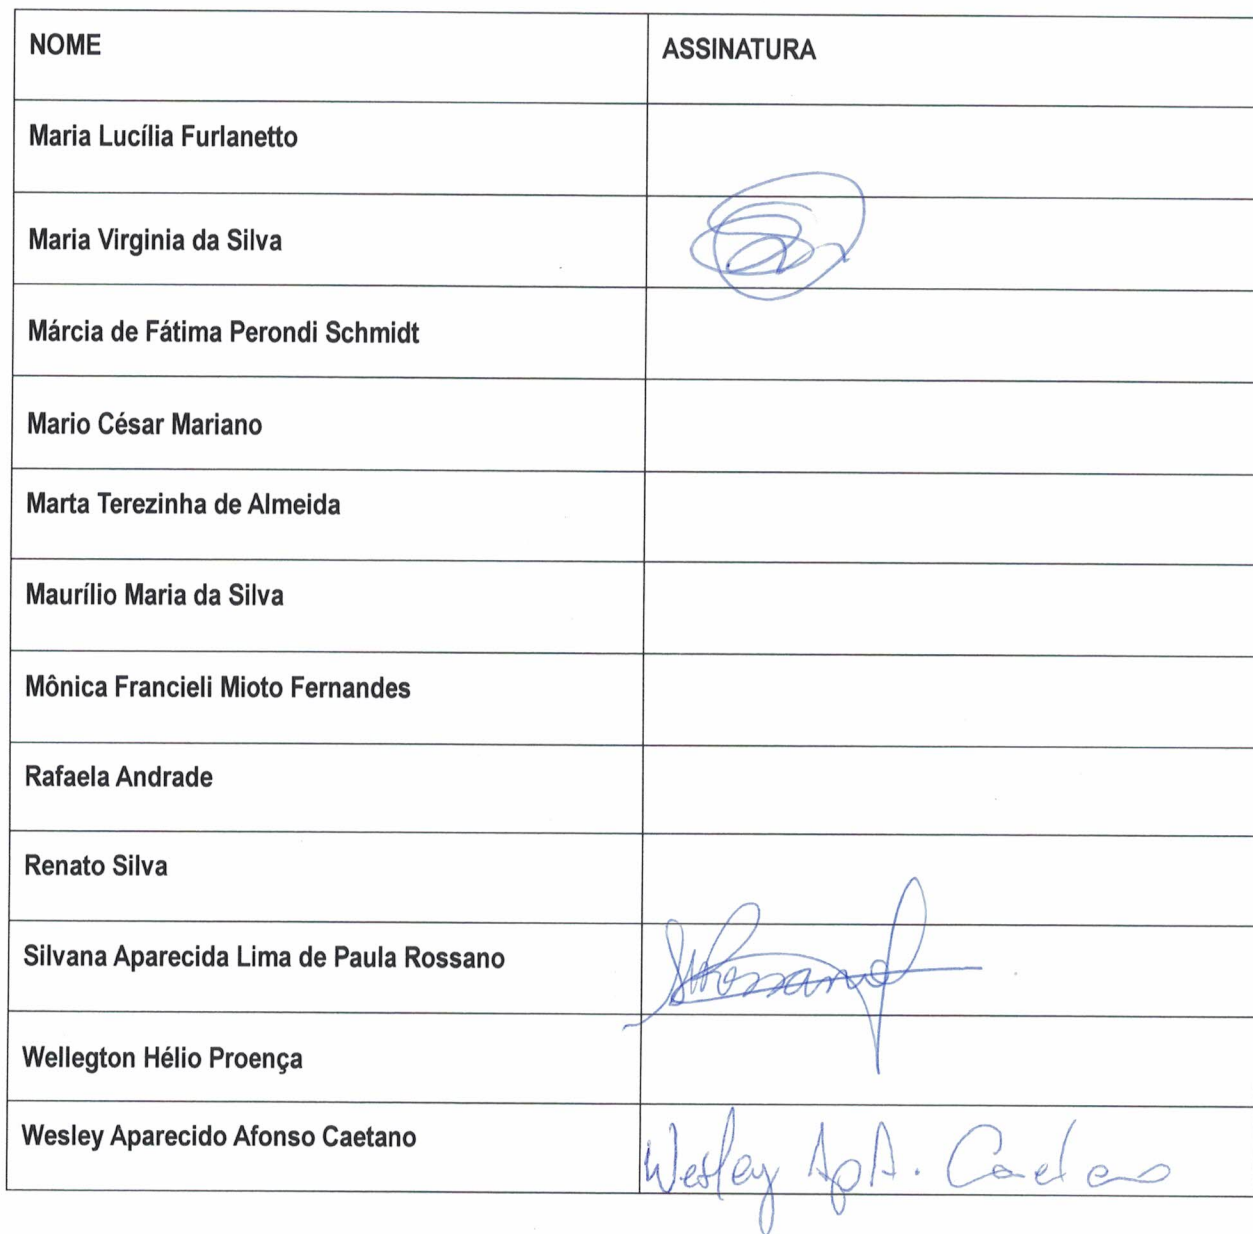 NOME ASSINATURA
Maria Lucília Furlanetto
Maria Virginia da Silva
Márcia de Fátima Perondi Schmidt
Mario César Mariano
Marta Terezinha de Almeida
Maurílio Maria da Silva
Mônica Francieli Mioto Fernandes
Rafaela Andrade
Renato Silva
Silvana Aparecida Lima de Paula Rossano
Wellegton Hélio Proença
Wesley Aparecido Afonso Caetano Wesley Ap A. Caetano